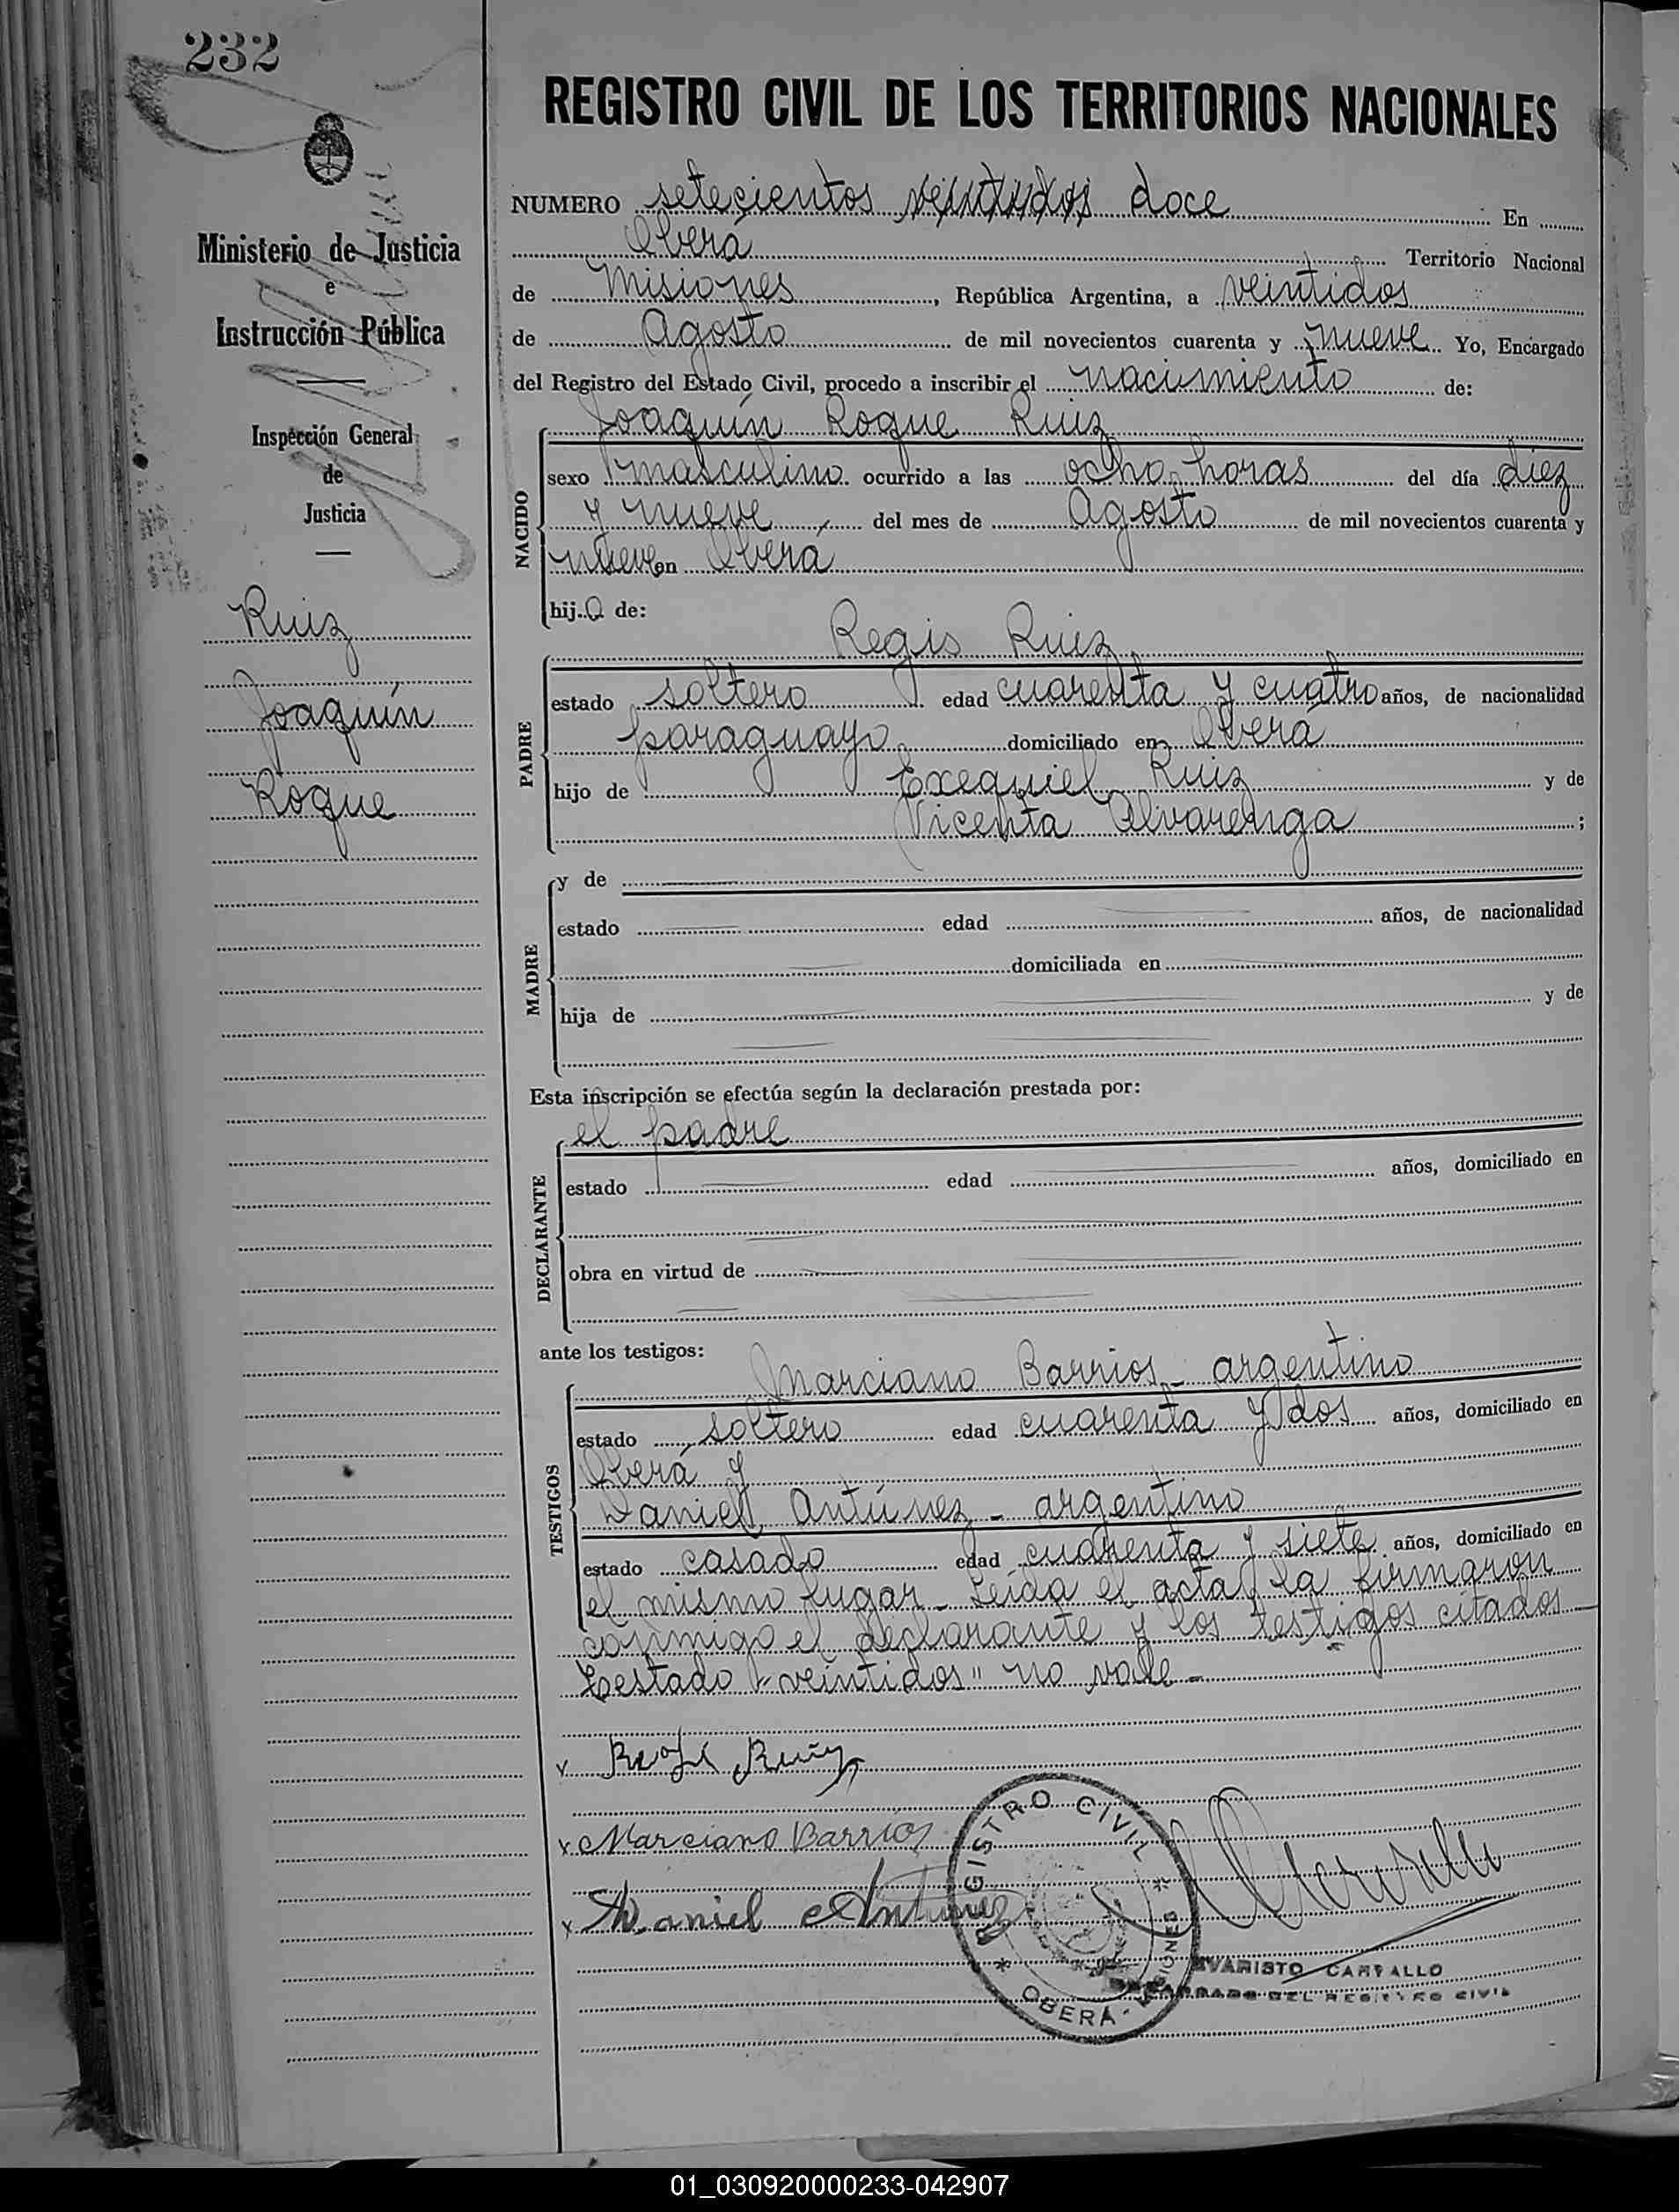 232
REGISTRO CIVIL DE LOS TERRITORIOS NACIONALES
Ministerio de Justicia
e
Instrucción Pública
Inspección General
de
Justicia
Ruiz
Joaquín
Roque
NUMERO setecientos veintidos doce En
Oberá Territorio Nacional
de Misiones, República Argentina, a veintidos
de Agosto de mil novecientos cuarenta y nueve Yo, Encargado
del Registro del Estado Civil, procedo a inscribir el nacimiento de:
Joaquín Roque Ruiz
NACIDO
sexo masculino ocurrido a las ocho horas del día diez
y nueve del mes de Agosto de mil novecientos cuarenta y
nueve en Oberá
hijo de:
Regis Ruiz
PADRE
estado soltero edad cuarenta y cuatro años, de nacionalidad
paraguayo domiciliado en Oberá
hijo de Exequiel Ruiz y de
Vicenta Alvarenga ;
MADRE
y de
estado edad años, de nacionalidad
domiciliada en
hija de y de
Esta inscripción se efectúa según la declaración prestada por:
el padre
DECLARANTE
estado edad años, domiciliado en
obra en virtud de
ante los testigos:
Marciano Barrios - argentino
TESTIGOS
estado soltero edad cuarenta y dos años, domiciliado en
Oberá y
Daniel Antúnez - argentino
estado casado edad cuarenta y siete años, domiciliado en
el mismo lugar - Leída el acta la firmaron
conmigo el declarante y los testigos citados
Testado "veintidos" no vale -
x Ruiz
x Marciano Barrios
x Daniel Antunez
REGISTRO CIVIL * OBERA - MISIONES *
EVARISTO CARVALLO
ENCARGADO DEL REGISTRO CIVIL
01_030920000233-042907